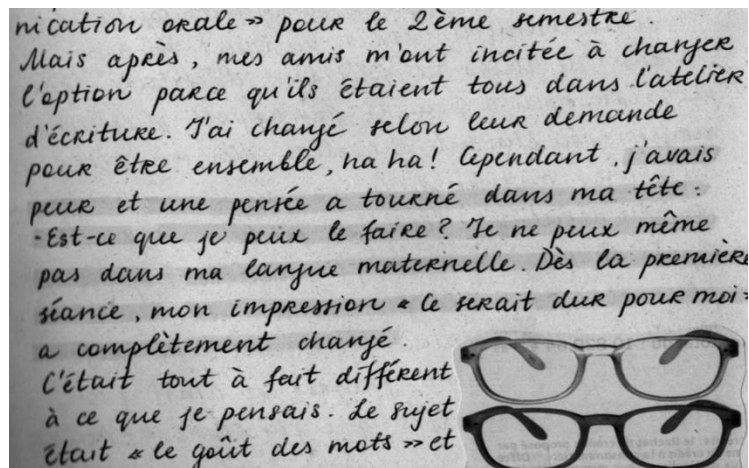 nication orale » pour le 2ème semestre.
Mais après, mes amis m'ont incitée à changer
l'option parce qu'ils étaient tous dans l'atelier
d'écriture. J'ai changé selon leur demande
pour être ensemble, ha ha! Cependant, j'avais
peur et une pensée a tourné dans ma tête :
- Est-ce que je peux le faire ? Je ne peux même
pas dans ma langue maternelle. Dès la première
séance, mon impression « Ce serait dur pour moi »
a complètement changé.
C'était tout à fait différent
à ce que je pensais. Le sujet
était « le goût des mots » et